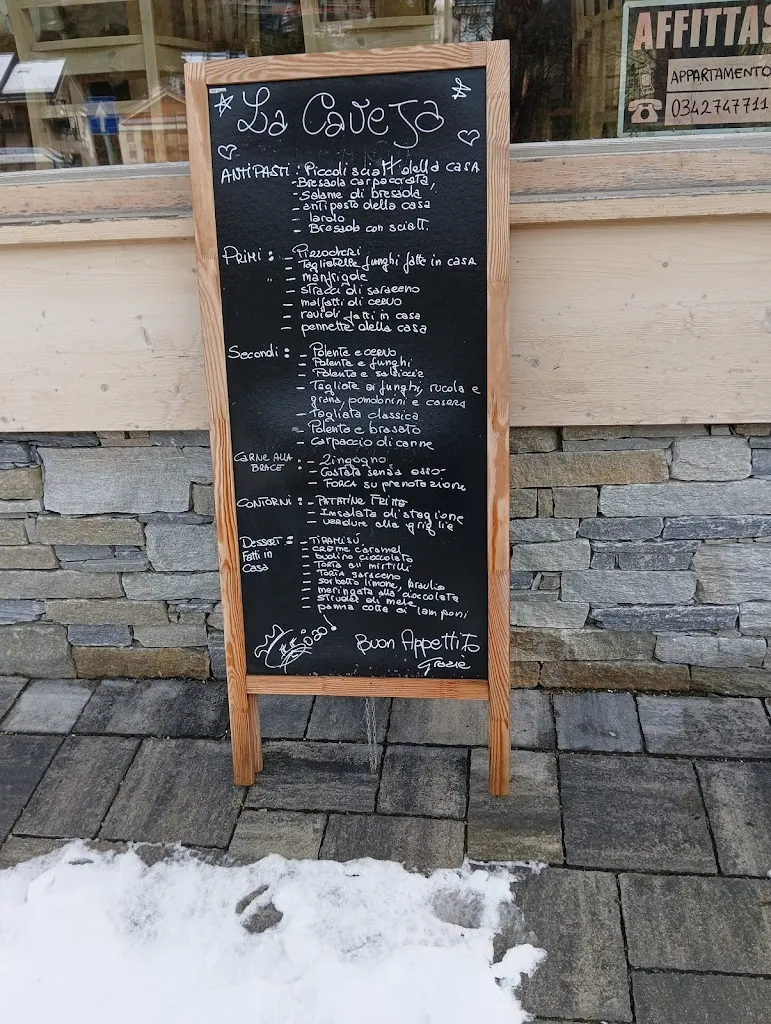 AFFITTAS
APPARTAMENTO
0342747711
La Caveja
ANTIPASTI: Piccoli sciatt della casa
- Bresaola carpacciata,
- Salame di bresaola
- antipasto della casa
- lardo
- Bresaola con sciatt.
Primi: - Pizzoccheri
- Tagliatelle funghi fatte in casa
- manfrigole
- stracci di saraceno
- malfatti di cervo
- ravioli fatti in casa
- pennette della casa
Secondi: - Polenta e cervo
- Polenta e funghi
- Polenta e salsiccia
- Tagliata ai funghi, rucola e
grana, pomodorini e casera
- Tagliata classica
- Polenta e brasato
- carpaccio di carne
CARNE ALLA BRACE: - Zingogno
- Costata senza osso
- FORCA su prenotazione
CONTORNI: - PATATINE FRITTE
- Insalata di stagione
- verdure alla griglia
Dessert: - TIRAMISÚ
Fatti in - creme caramel
Casa - budino cioccolato
- Torta ai mirtilli
- Torta saraceno
- sorbetto limone, braulio
- meringata alla cioccolata
- strudel di mele
- panna cotta ai lamponi
Buon Appetito
Grazie